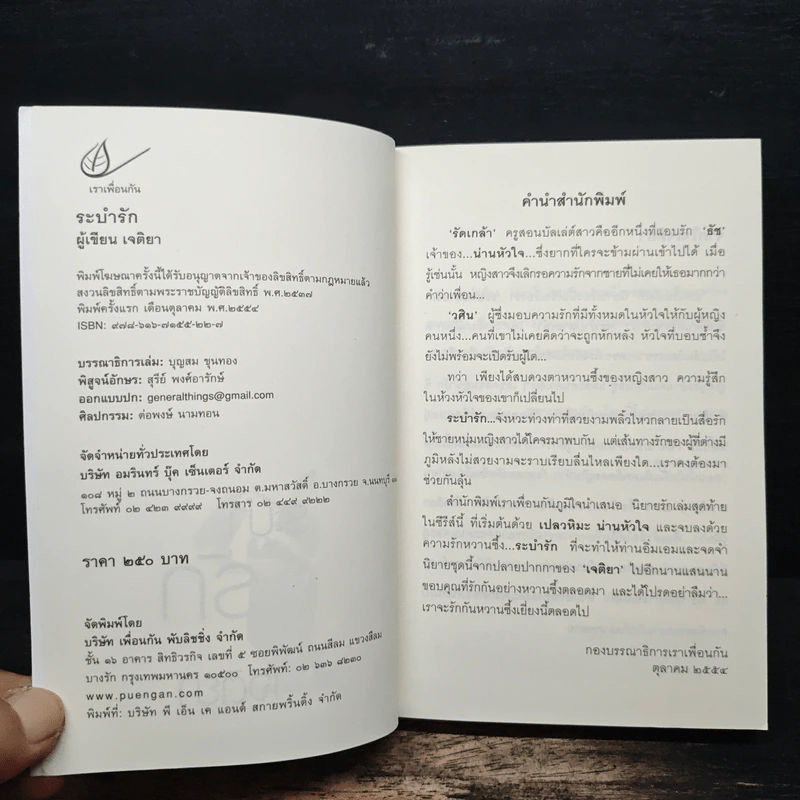 เราเพื่อนกัน
ระบำรัก
ผู้เขียน เจติยา
พิมพ์โฆษณาครั้งนี้ได้รับอนุญาตจากเจ้าของลิขสิทธิ์ตามกฎหมายแล้ว
สงวนลิขสิทธิ์ตามพระราชบัญญัติลิขสิทธิ์ พ.ศ.๒๕๓๗
พิมพ์ครั้งแรก เดือนตุลาคม พ.ศ.๒๕๕๔
ISBN: ๙๗๘-๖๑๖-๗๑๕๕-๒๒-๗
บรรณาธิการเล่ม: บุญสม ขุนทอง
พิสูจน์อักษร: สุรีย์ พงศ์อารักษ์
ออกแบบปก: generalthings@gmail.com
ศิลปกรรม: ต่อพงษ์ นามทอน
จัดจำหน่ายทั่วประเทศโดย
บริษัท อมรินทร์ บุ๊ค เซ็นเตอร์ จำกัด
๑๐๘ หมู่ ๒ ถนนบางกรวย-จงถนอม ต.มหาสวัสดิ์ อ.บางกรวย จ.นนทบุรี
โทรศัพท์ ๐๒ ๔๒๓ ๙๙๙๙ โทรสาร ๐๒ ๔๔๙ ๙๒๒๒
ราคา ๒๕๐ บาท
จัดพิมพ์โดย
บริษัท เพื่อนกัน พับลิชชิ่ง จำกัด
ชั้น ๑๖ อาคาร สิทธิวรกิจ เลขที่ ๕ ซอยพิพัฒน์ ถนนสีลม แขวงสีลม
บางรัก กรุงเทพมหานคร ๑๐๕๐๐ โทรศัพท์: ๐๒ ๖๓๖ ๘๒๓๐
www.puengan.com
พิมพ์ที่: บริษัท พี เอ็น เค แอนด์ สกายพริ้นติ้ง จำกัด
คำนำสำนักพิมพ์
‘รัดเกล้า’ ครูสอนบัลเล่ต์สาวคืออีกหนึ่งที่แอบรัก ‘ธัช’
เจ้าของ...น่านหัวใจ...ซึ่งยากที่ใครจะข้ามผ่านเข้าไปได้ เมื่อ
รู้เช่นนั้น หญิงสาวจึงเลิกรอความรักจากชายที่ไม่เคยให้เธอมากกว่า
คำว่าเพื่อน...
‘วศิน’ ผู้ซึ่งมอบความรักที่มีทั้งหมดในหัวใจให้กับผู้หญิง
คนหนึ่ง...คนที่เขาไม่เคยคิดว่าจะถูกหักหลัง หัวใจที่บอบช้ำจึง
ยังไม่พร้อมจะเปิดรับผู้ใด...
ทว่า เพียงได้สบดวงตาหวานซึ้งของหญิงสาว ความรู้สึก
ในห้วงหัวใจของเขาก็เปลี่ยนไป
ระบำรัก...จังหวะท่วงท่าที่สวยงามพลิ้วไหวกลายเป็นสื่อรัก
ให้ชายหนุ่มหญิงสาวได้โคจรมาพบกัน แต่เส้นทางรักของผู้ที่ต่างมี
ภูมิหลังไม่สวยงามจะราบเรียบลื่นไหลเพียงใด...เราคงต้องมา
ช่วยกันลุ้น
สำนักพิมพ์เราเพื่อนกันภูมิใจนำเสนอ นิยายรักเล่มสุดท้าย
ในซีรีส์นี้ ที่เริ่มต้นด้วย เปลวหิมะ น่านหัวใจ และจบลงด้วย
ความรักหวานซึ้ง...ระบำรัก ที่จะทำให้ท่านอิ่มเอมและจดจำ
นิยายชุดนี้จากปลายปากกาของ ‘เจติยา’ ไปอีกนานแสนนาน
ขอบคุณที่รักกันอย่างหวานซึ้งตลอดมา และได้โปรดอย่าลืมว่า...
เราจะรักกันหวานซึ้งเยี่ยงนี้ตลอดไป
กองบรรณาธิการเราเพื่อนกัน
ตุลาคม ๒๕๕๔